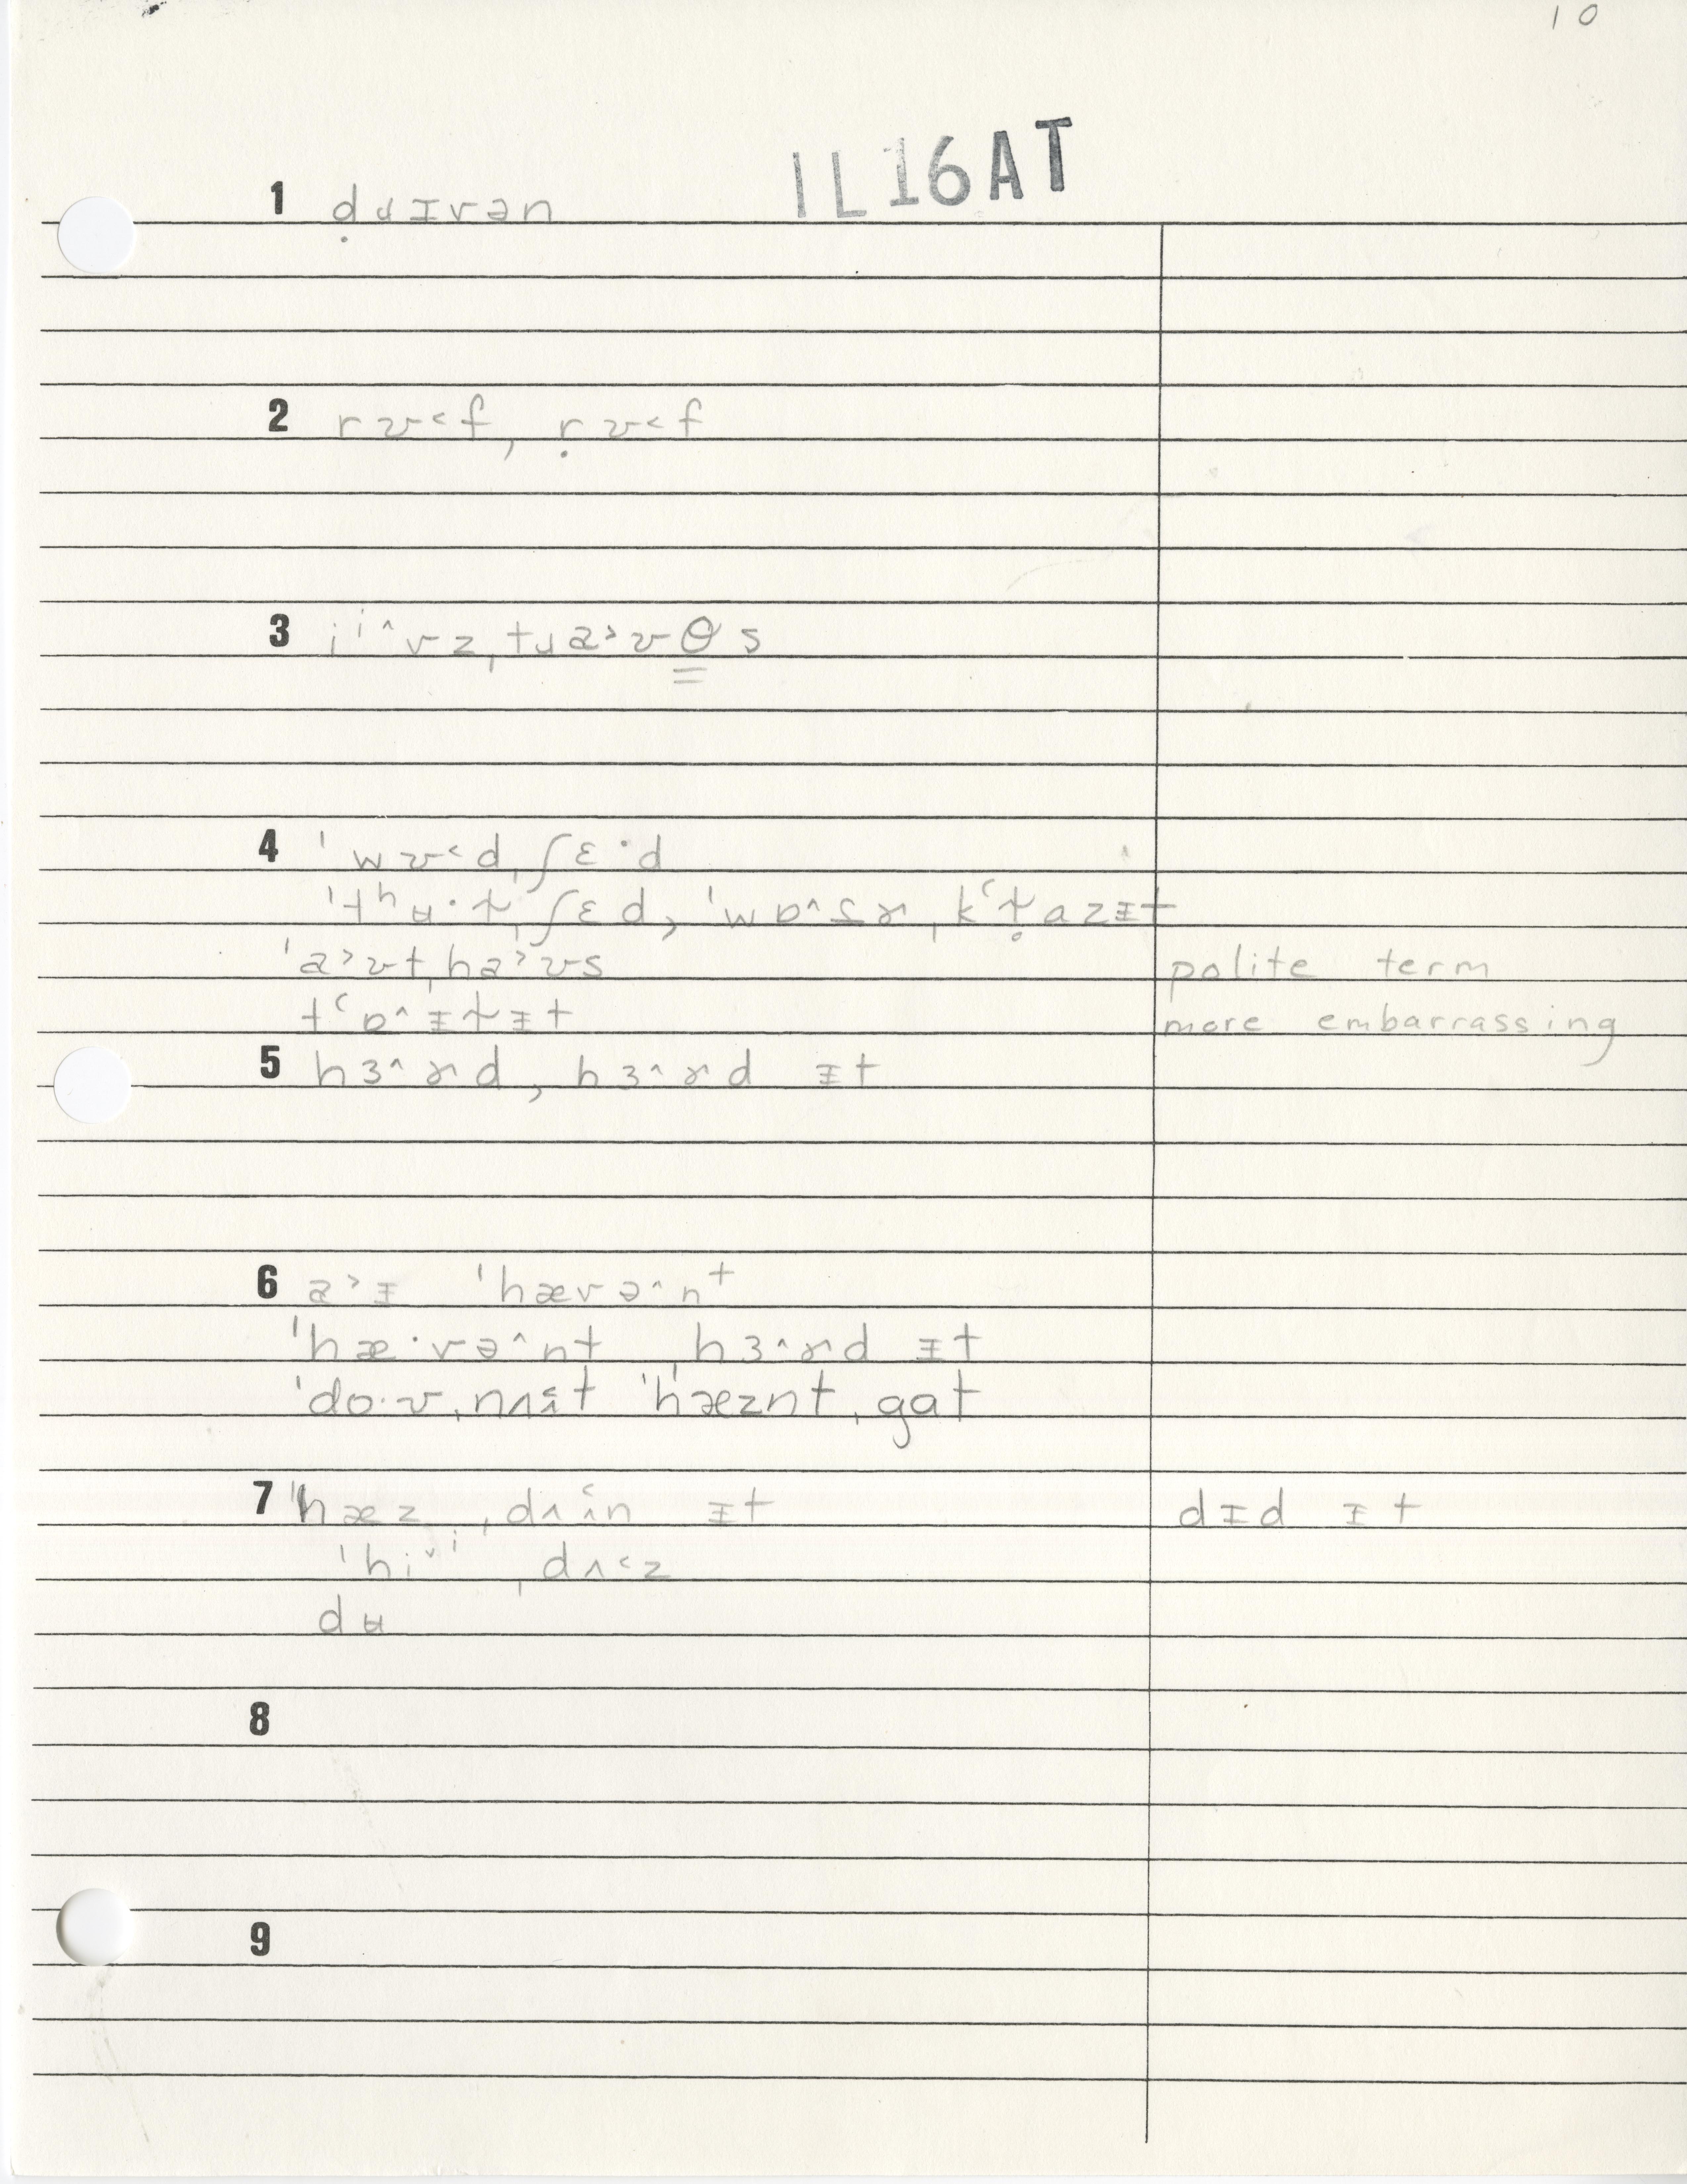 10
IL16AT
1 ḍɹɪvən
2 rʊ˂f, ṛʊ˂f
3 ii^vz, tɹa˃ʊθ̳s
4 ˈwʊ˂d ˌʃɛ·d
ˈtʰʉ·ɫ ˌʃɛd, ˈwɒ^ʃɚ, kʿɫ̥azɪt
ˈa˃ʊt ˌha˃ʊs polite term
tʿɒ^ɪɫɪt more embarrassing
5 hɜ^ɚd, hɜ^ɚd ɪt
6 a˃ɪ ˈhævə^nt
ˈhæ·və^nt hɜ^ɚd ɪt
ˈdo·ʊ ˈhæznt ˌgat
7 ˈhæz ɪt dɪd ɪt
ˈhi˅i ˌdʌ˂z
dʉ
8
9